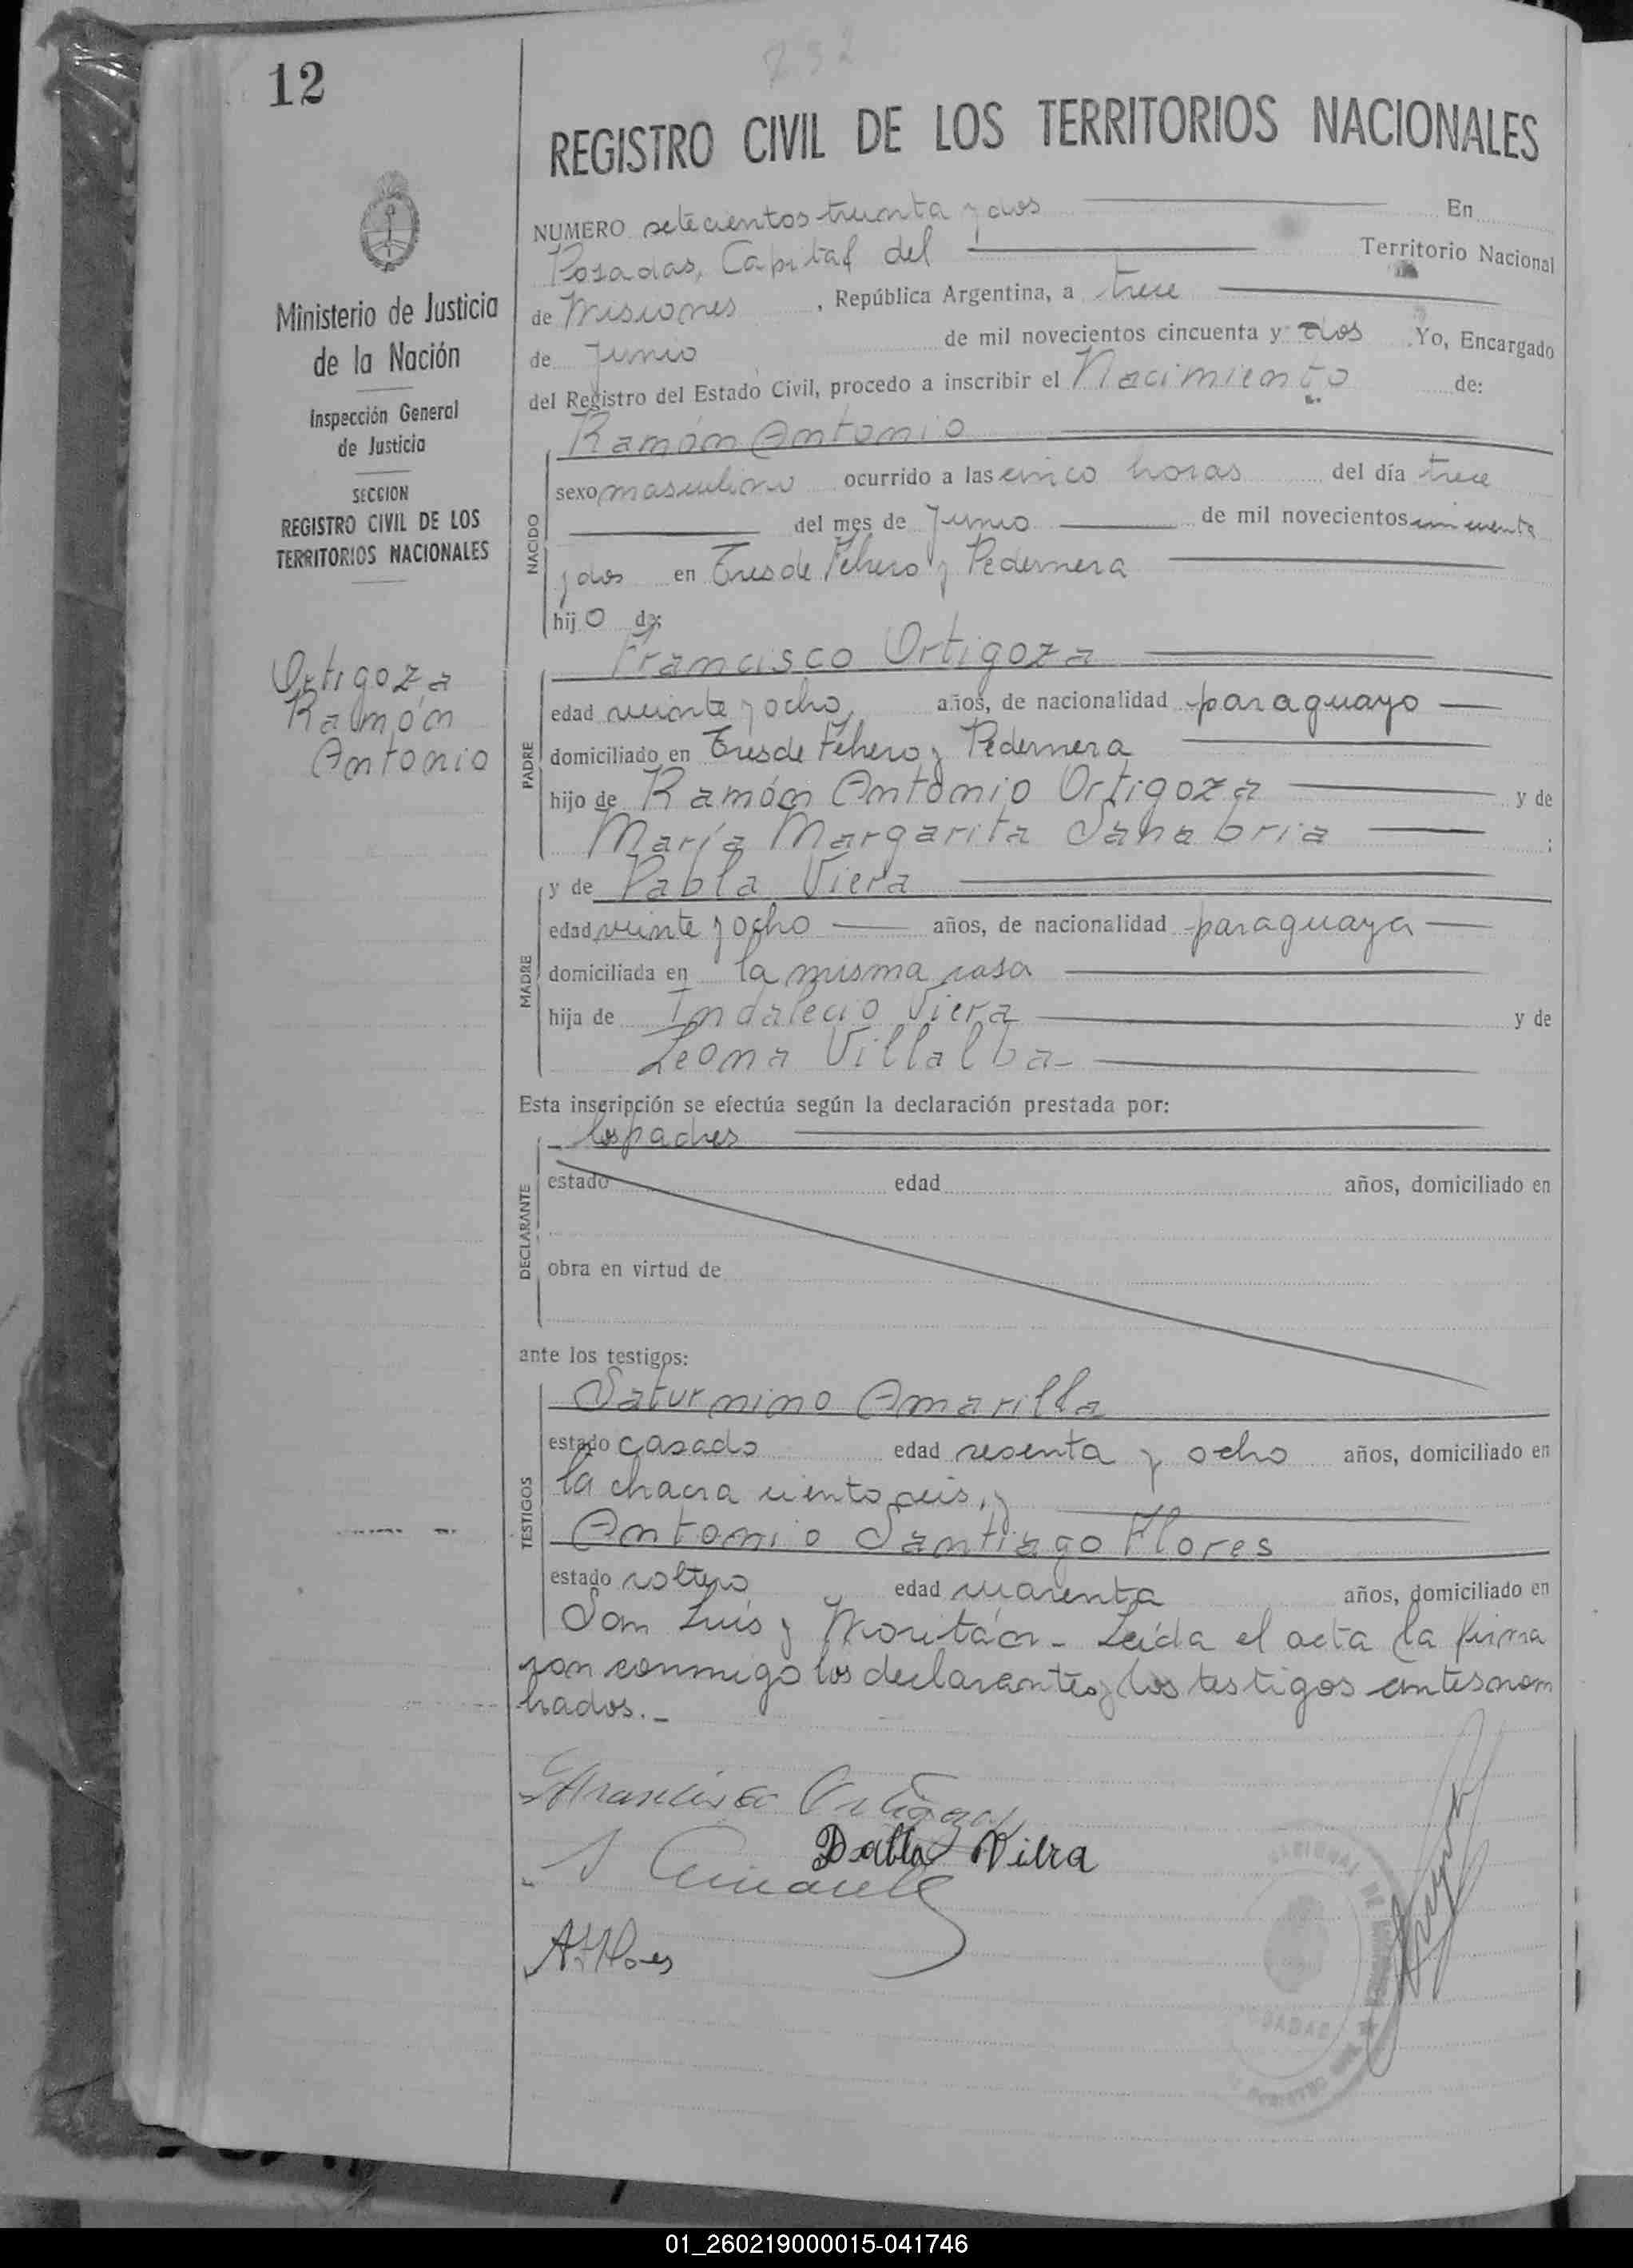 12
732
REGISTRO CIVIL DE LOS TERRITORIOS NACIONALES
NUMERO setecientos treinta y dos En
Posadas, Capital del Territorio Nacional
de Misiones, República Argentina, a trece
de Junio de mil novecientos cincuenta y dos Yo, Encargado
del Registro del Estado Civil, procedo a inscribir el Nacimiento de:
Ramón Antonio
NACIDO
sexo masculino ocurrido a las cinco horas del día trece
del mes de Junio de mil novecientos cincuenta
y dos en Tres de Febrero y Pedernera
hijo de:
Francisco Ortigoza
PADRE
edad veinte y ocho, años, de nacionalidad paraguayo
domiciliado en Tres de Febrero y Pedernera
hijo de Ramón Antonio Ortigoza y de
María Margarita Sanabria ;
y de Pabla Viera
MADRE
edad veinte y ocho años, de nacionalidad paraguaya
domiciliada en la misma casa
hija de Indalecio Viera y de
Leona Villalba
Esta inscripción se efectúa según la declaración prestada por:
los padres
DECLARANTE
estado edad años, domiciliado en
obra en virtud de
ante los testigos:
Saturnino Amarilla
TESTIGOS
estado casado edad sesenta y ocho años, domiciliado en
la chacra ciento seis, y
Antonio Santiago Flores
estado soltero edad cuarenta años, domiciliado en
San Luis y Moritán - Leída el acta la firma
ron conmigo los declarantes y los testigos antes nom
brados. -
Francisco Ortigoza
Pabla Viera
S Amarilla
A.S. Flores
Ministerio de Justicia
de la Nación
Inspección General
de Justicia
SECCION
REGISTRO CIVIL DE LOS
TERRITORIOS NACIONALES
Ortigoza
Ramón
Antonio
01_260219000015-041746